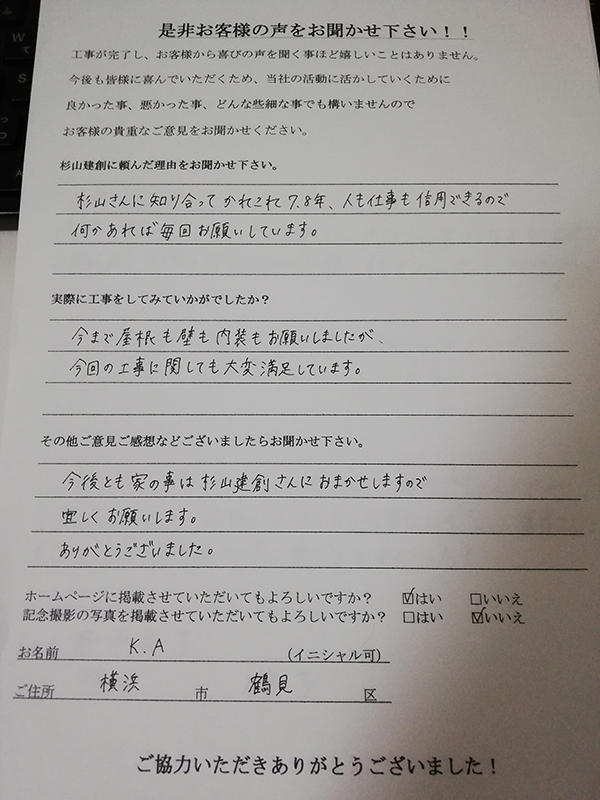 是非お客様の声をお聞かせ下さい！！
工事が完了し、お客様から喜びの声を聞く事ほど嬉しいことはありません。
今後も皆様に喜んでいただくため、当社の活動に活かしていくために
良かった事、悪かった事、どんな些細な事でも構いませんので
お客様の貴重なご意見をお聞かせください。
杉山建創に頼んだ理由をお聞かせ下さい。
杉山さんに知り合ってかれこれ7.8年、人も仕事も信用できるので
何かあれば毎回お願いしています。
実際に工事をしてみていかがでしたか？
今まで屋根も壁も内装もお願いしましたが、
今回の工事に関しても大変満足しています。
その他ご意見ご感想などございましたらお聞かせ下さい。
今後とも家の事は杉山建創さんにおまかせしますので
宜しくお願いします。
ありがとうございました。
ホームページに掲載させていただいてもよろしいですか？ ☑はい □いいえ
記念撮影の写真を掲載させていただいてもよろしいですか？ □はい ☑いいえ
お名前 K.A (イニシャル可)
ご住所 横浜 市 鶴見 区
ご協力いただきありがとうございました！